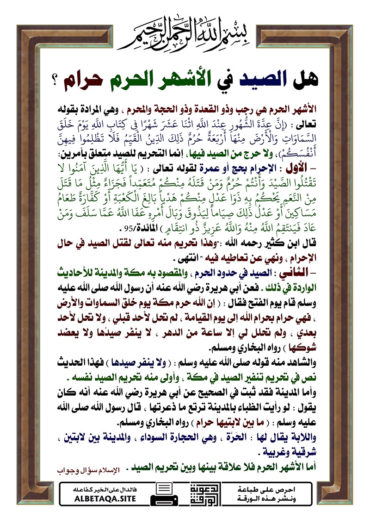 بسم الله الرحمن الرحيم
هل الصيد في الأشهر الحرم حرام ؟
الأشهر الحرم هي رجب وذو القعدة وذو الحجة والمحرم ، وهي المرادة بقوله
تعالى : (إِنَّ عِدَّةَ الشُّهُورِ عِنْدَ اللَّهِ اثْنَا عَشَرَ شَهْرًا فِي كِتَابِ اللَّهِ يَوْمَ خَلَقَ
السَّمَاوَاتِ وَالْأَرْضَ مِنْهَا أَرْبَعَةٌ حُرُمٌ ذَلِكَ الدِّينُ الْقَيِّمُ فَلَا تَظْلِمُوا فِيهِنَّ
أَنْفُسَكُمْ)، ولا حرج من الصيد فيها، إنما التحريم للصيد متعلق بأمرين:
– الأول : الإحرام بحج أو عمرة لقوله تعالى : ( يَا أَيُّهَا الَّذِينَ آمَنُوا لَا
تَقْتُلُوا الصَّيْدَ وَأَنْتُمْ حُرُمٌ وَمَنْ قَتَلَهُ مِنْكُمْ مُتَعَمِّدًا فَجَزَاءٌ مِثْلُ مَا قَتَلَ
مِنَ النَّعَمِ يَحْكُمُ بِهِ ذَوَا عَدْلٍ مِنْكُمْ هَدْيًا بَالِغَ الْكَعْبَةِ أَوْ كَفَّارَةٌ طَعَامُ
مَسَاكِينَ أَوْ عَدْلُ ذَلِكَ صِيَامًا لِيَذُوقَ وَبَالَ أَمْرِهِ عَفَا اللَّهُ عَمَّا سَلَفَ وَمَنْ
عَادَ فَيَنْتَقِمُ اللَّهُ مِنْهُ وَاللَّهُ عَزِيزٌ ذُو انْتِقَامٍ ) المائدة/95 .
قال ابن كثير رحمه الله :"وهذا تحريم منه تعالى لقتل الصيد في حال
الإحرام ، ونهي عن تعاطيه فيه " انتهى .
– الثاني : الصيد في حدود الحرم ، والمقصود به مكة والمدينة للأحاديث
الواردة في ذلك . فعن أبي هريرة رضي الله عنه أن رسول الله صلى الله عليه
وسلم قام يوم الفتح فقال : ( إن الله حرم مكة يوم خلق السماوات والأرض
، فهي حرام بحرام الله إلى يوم القيامة ، لم تحل لأحد قبلي ، ولا تحل لأحد
بعدي ، ولم تحلل لي إلا ساعة من الدهر ، لا ينفر صيدها ولا يعضد
شوكها ) رواه البخاري ومسلم.
والشاهد منه قوله صلى الله عليه وسلم : ( ولا ينفر صيدها ) فهذا الحديث
نص في تحريم تنفير الصيد في مكة ، وأولى منه تحريم الصيد نفسه .
وأما المدينة فقد ثبت في الصحيح عن أبي هريرة رضي الله عنه أنه كان
يقول : لو رأيت الظباء بالمدينة ترتع ما ذعرتها ، قال رسول الله صلى الله
عليه وسلم : ( ما بين لابتيها حرام ) رواه البخاري ومسلم.
واللابة يقال لها : الحرّة ، وهي الحجارة السوداء ، والمدينة بين لابتين ،
شرقية وغربية .
أما الأشهر الحرم فلا علاقة بينها وبين تحريم الصيد .  الإسلام سؤال وجواب
احرص على طباعة
ونشر هذه الورقة
الدعوية
الورقة
فالدال على الخير كفاعله
ALBETAQA.SITE